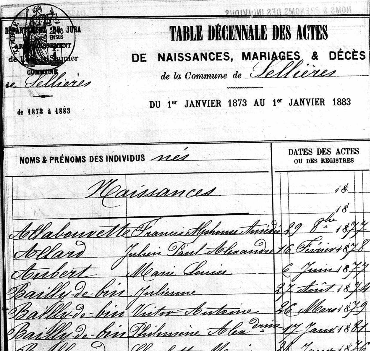 DÉPARTEMENT DU JURA
COMMUNE
Sellières
de 1873 à 1883
TABLE DÉCENNALE DES ACTES
DE NAISSANCES, MARIAGES & DÉCÈS
de la Commune de Sellières
DU 1er JANVIER 1873 AU 1er JANVIER 1883
NOMS & PRÉNOMS DES INDIVIDUS nés
DATES DES ACTES
OU DES REGISTRES
Naissances 18
18
Allabouvette Francis Alphonse 29 8bre 1877
Allard Julien Paul Alexandre 16 Février 1878
Aubert Marie Louise 6 Juin 1877
Bailly-de-bin Julienne 27 Août 1874
Bailly-de-bin Victor Antoine 26 Mars 1879
Bailly-de-bin Philomène 17 Janv 1881